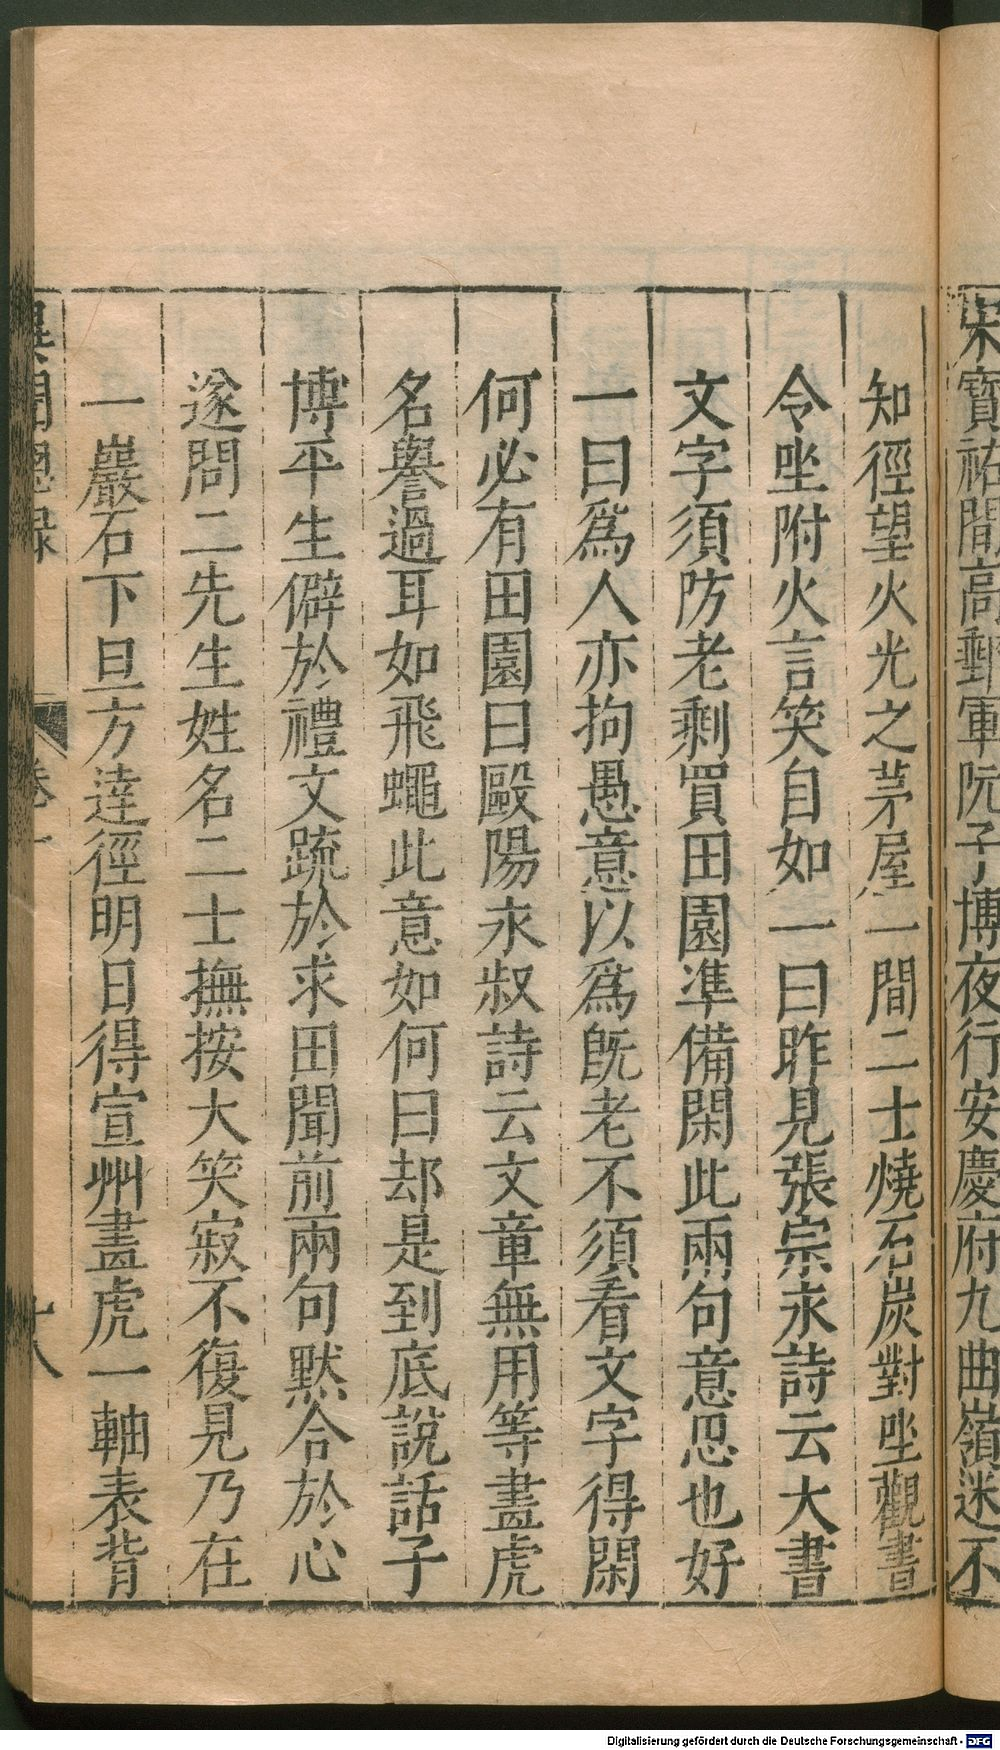 宋寶祐間高郵軍阮子博夜行安慶府九曲嶺迷不
知徑望火光之茅屋一間二士燒石炭對坐觀書
令坐附火言笑自如一曰昨見張宗永詩云大書
文字須防老剩買田園準備閑此兩句意思也好
一曰爲人亦拘愚意以爲旣老不須看文字得閑
何必有田園曰歐陽永叔詩云文章無用等畫虎
名譽過耳如飛蠅此意如何曰却是到底說話子
博平生僻於禮文䟽於求田聞前兩句默合於心
遂問二先生姓名二士撫按大笑寂不復見乃在
一巖石下旦方達徑明日得宣州畫虎一軸表背
異聞總錄
卷一
十八
Digitalisierung gefördert durch die Deutsche Forschungsgemeinschaft - DFG